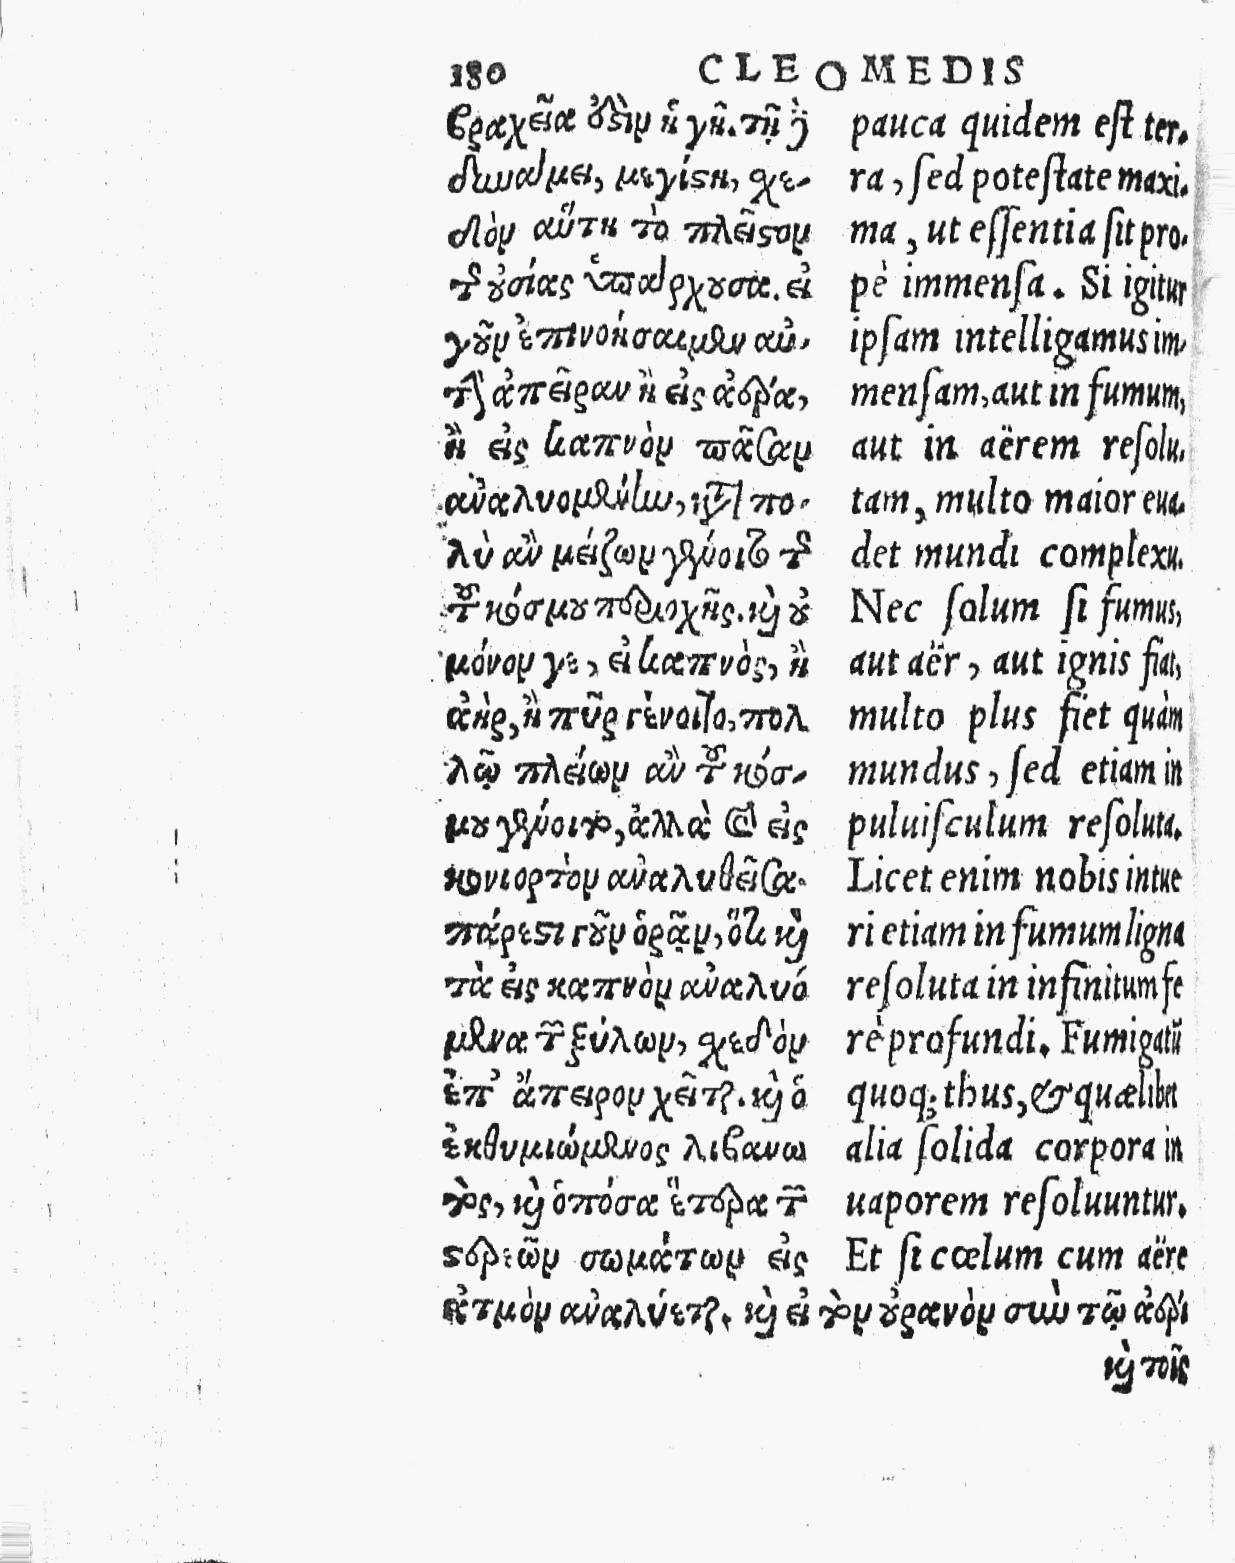 180 CLEOMEDIS
βραχεῖα ὄυσιν ἡ γῆ. τῇ ϳ
δυνάμει, μεγίστη, σχε-
δὸν αὕτη τὸ πλεῖστον
τῆς οὐσίας ὑπάρχουσα. εἰ
γοῦν ἐπινοήσαιμεν αὐ-
τὴν ἄπειραν ἢ εἰς ἀέρα,
ἢ εἰς καπνὸν πᾶσαν
ἀναλυομένην, κατὰ πο-
λὺ ἂν μείζων γένοιτο τῆς
τοῦ κόσμου περιοχῆς. καὶ οὐ
μόνον γε, εἰ καπνὸς, ἢ
ἀὴρ, ἢ πῦρ γένοιτο, πολ
λῷ πλείων ἂν τοῦ κόσ-
μου γένοιτο, ἀλλὰ καὶ εἰς
κονιορτὸν ἀναλυθεῖσα.
πάρεστι γοῦν ὁρᾷν, ὅτι καὶ
τὰ εἰς καπνὸν ἀναλυό
μενα τῶν ξύλων, σχεδὸν
ἐπ' ἄπειρον χεῖται. καὶ ὁ
ἐκθυμιώμενος λιβανω
τὸς, καὶ ὁπόσα ἕτερα τῶν
στερεῶν σωμάτων εἰς
ἀτμὸν ἀναλύεται. καὶ εἰ τὸν οὐρανὸν σὺν τῷ ἀέρι
καὶ τοῖς
pauca quidem est ter-
ra, sed potestate maxi-
ma, ut essentia sit pro-
pè immensa. Si igitur
ipsam intelligamus im-
mensam, aut in fumum,
aut in aërem resolu-
tam, multo maior eua-
det mundi complexu.
Nec solum si fumus,
aut aër, aut ignis fiat,
multo plus fiet quàm
mundus, sed etiam in
puluisculum resoluta.
Licet enim nobis intue
ri etiam in fumum ligna
resoluta in infinitum fe
rè profundi. Fumigatū
quoq; thus, & quælibet
alia solida corpora in
uaporem resoluuntur.
Et si cœlum cum aëre